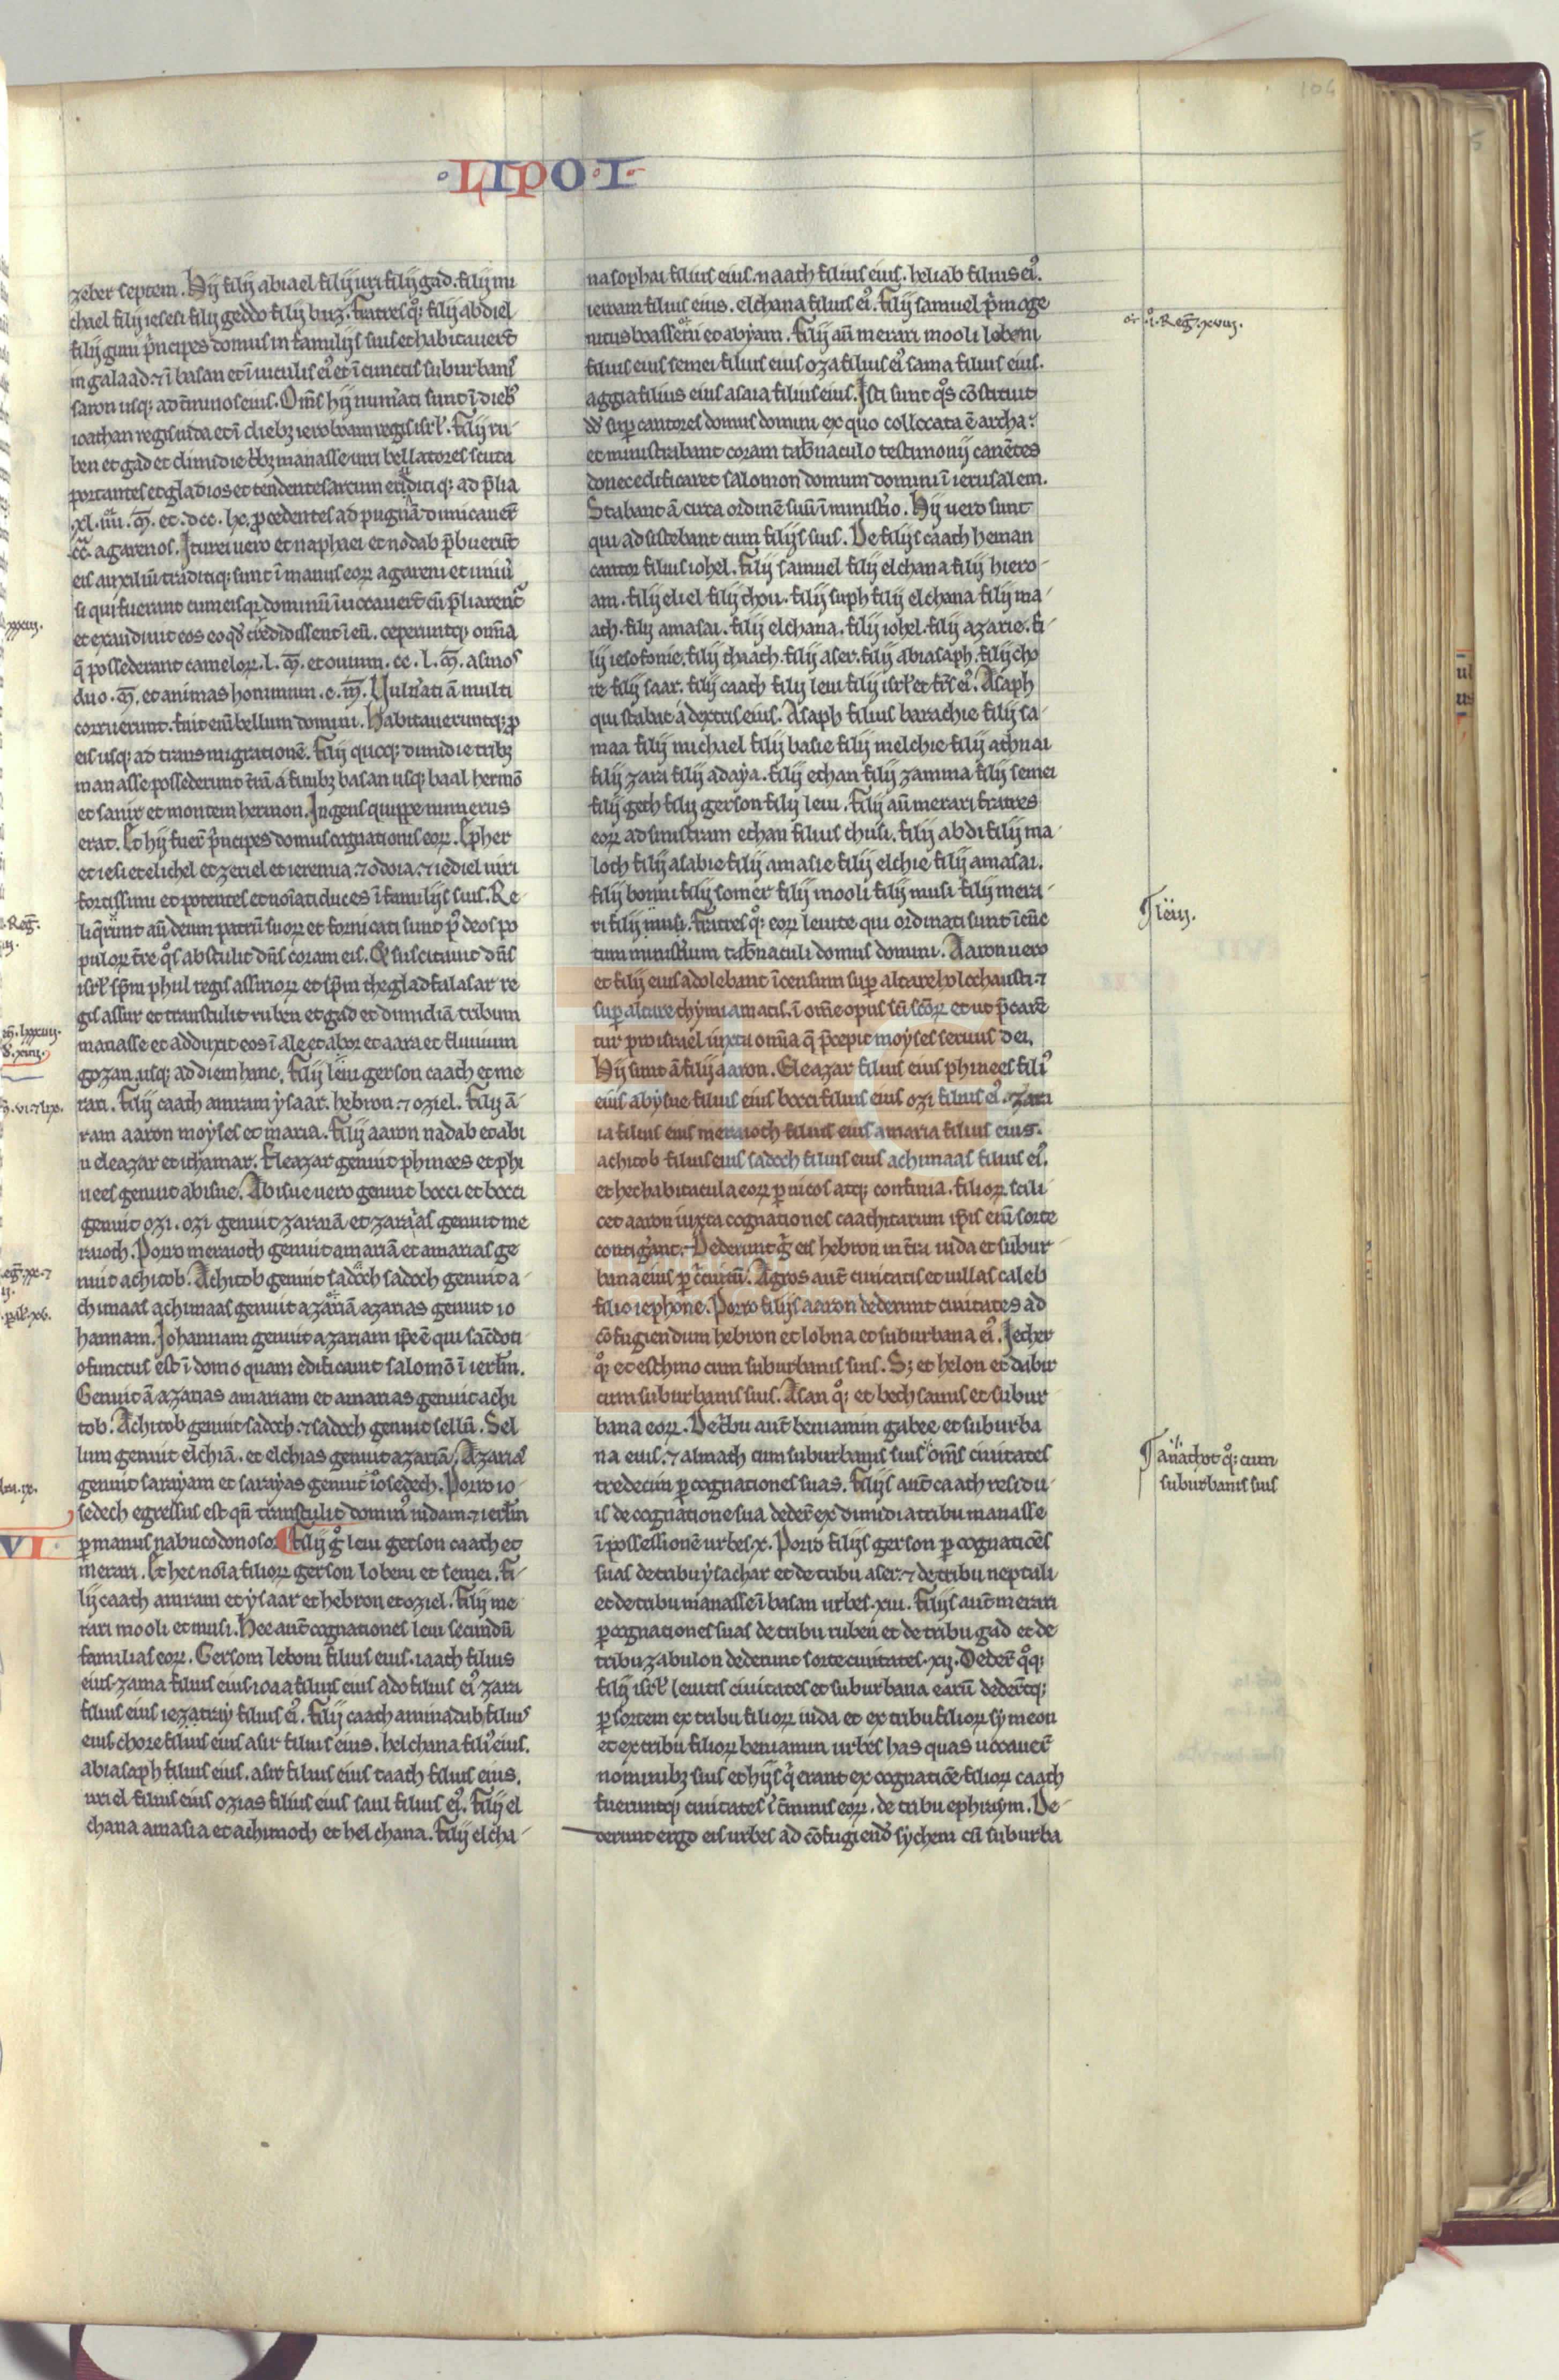 106
·LIPO·I·
zeber septem. Hij filij abiael filij uri filij gad. filij mi
chael filij iesesi filij geddo filij buz. fratres qͦ: filij abdiel
filij guni p̓ncipes domus in familijs suis et habitauert̄
in galaad ⁊ ī basan et ī uiculis ei⁹ et ī cunctis suburbanis
saron usq; ad t̄minos eius. Om̄s hij num̓ati sunt ī dieb;
ioathan regis iuda et ī dieb; ieroboam regis isrl̄. filij ru
ben et gad et dimidie t̓b; manasse uiri bellatores scuta
portantes et gladios et tendentes arcum erudịti q; ad p̄lia
.xl. iiii. m̄. et .dcc. lx. p̱cedentes ad pugnā dimicauer̄t
cc̄. agarenos. Iturei uero et naphaei et nodab p̄buerūt
eis auxiliū traditiq; sunt ī manus eoꝝ agareni et uniu̓
si qui fuerant cum eis q; dominū īuocauert̄ cū p̄liarent̄
et exaudiuit eos eo qd̓ credidissent ī eū. ceperuntq; om̄ia
q̄ possederant cameloꝝ .l. m̄. et ouium .cc. l. m̄. asinos
duo .m̄. et animas hominum .c. m̄. Uuln̓ati ā multi
corruerunt. fuit em̄ bellum domini. Habitaueruntq; p̱
eis usq; ad transmigrationē. filij quoq; dimidie trib;
manasse possederunt t̓rā á finib; basan usq; baal hermō
et sanir et montem hermon. Ingens quippe numerus
erat. Et hij fuer̄ p̓ncipes domus cognationis eoꝝ. Epher
et iesi et elichel et zeriel et ieremia. ⁊ odoia. ⁊ iediel uiri
fortissimi et potentes et noīati duces ī familijs suis. Re
liq̓runt au̅ deum patrū suoꝝ et fornicati sunt p⁹ deos po
puloꝝ t̓re qͦs abstulit dn̄s coram eis. Et suscitauit dn̄s
isrl̄ sp̄m phul regis assirioꝝ et sp̄m theglad falasar re
gis assur et transtulit ruben et gad et dimidiā tribum
manasse et adduxit eos ī ale et abor et aara et fluuium
gozan. usq; ad diem hunc. filij leui gerson caath et me
rari. filij caath amram ysaar. hebron. ⁊ oziel. filij ā
ram aaron moyses et maria. filij aaron nadab et abi
u eleazar et ithamar. Eleazar genuit phinees et phi
nees genuit abisue. Abisue uero genuit bocci et bocci
genuit ozi. ozi genuit zaraiā et zaraias genuit me
raioth. Porro meraioth genuit amariā et amarias ge
nuit achitob. Achitob genuit sadoch sadoch genuit a
chimaas achimaas genuit azariā azarias genuit io
hannam. Iohannam genuit azariam ip̄e ē qui sac̄doti
o functus est ī domo quam edificauit salomō ī ierl̄m.
Genuit ā azarias amariam et amarias genuit achi
tob. Achitob genuit sadoch. ⁊ sadoch genuit sellū. Sel
lum genuit elchiā. et elchias genuit azariā. Azarias
genuit sarayam et sarayas genuit iosedech. Porro io
sedech egressus est qn̄ transtulit domin⁹ iudam ⁊ ierl̄m
p̱ manus nabucodonosor. filij gͦ leui gerson caath et
merari. Et hec noīa filioꝝ gerson lobeni et semei. fi
lij caath amram et ysaar et hebron et oziel. filij me
rari mooli et musi. Hec aut̄ cognationes leui secundū
familias eoꝝ. Gersom lebom filius eius. iaath filius
eius. zama filius eius ioaa filius eius ado filius ei⁹ zara
filius eius iezatray filius ei⁹. filij caath aminadab filius
eius chore filius eius asir filius eius. helchana fili⁹ eius.
abiasaph filius eius. asir filius eius taath filius eius.
uriel filius eius ozias filius eius saul filius ei⁹. filij el
chana amasia et achimoth et helchana. filij elcha
VI
na sophai filius eius. naath filius eius. heliab filius ei⁹.
ieroam filius eius. elchana filius ei⁹. filij samuel p̓moge
nitus uasseni et abyam. filij au̅ merari mooli lobeni
filius eius semei filius eius oza filius ei⁹ sama filius eius.
aggia filius eius asaia filius eius. Isti sunt qͦs cōstituit
dd̄ sup̱ cantores domus domini ex quo collocata ē archa:
et ministrabant coram tab̄naculo testimonij canētes
donec edificaret salomon domum domini ī ierusalem.
Stabant ā circa ordinē suū ī minist̓io. Hij uero sunt
qui adsistebant cum filijs suis. De filijs caath heman
cantor filius iohel. filij samuel filij elchana filij hiero
am. filij eliel filij thou. filij suph filij elchana filij ma
ath. filij amasai. filij elchana. filij iohel. filij azarie. fi
lij iesofonie. filij thaath. filij aser. filij abiasaph. filij cho
re filij saar. filij caath filij leui filij isrl̄ et fr̄s ei⁹. Asaph
qui stabat á dextris eius. Asaph filius barachie filij sa
maa filij michael filij basie filij melchie filij athnai
filij zara filij adaya. filij echan filij zamma filij semei
filij geth filij gerson filij leui. filij au̅ merari fratres
eoꝝ ad sinistram echan filius chusi. filij abdi filij ma
loch filij asabie filij amasie filij elchie filij amasai.
filij bonni filij somer filij mooli filij musi filij mera
ri filij musi. fratres qͦ: eoꝝ leuite qui ordinati sunt ī cūc
tum minist̓ium tab̄naculi domus domini. Aaron uero
et filij eius adolebant īcensum sup̱ altare holochausti. ⁊
sup̱ altare thymiamatis. ī om̄e opus sc̄i sc̄oꝝ et ut p̄carē
tur p̱ro israel iuxta om̄ia q̄ p̄cepit moyses seruus dei.
Hij sunt ā filij aaron. Eleazar filius eius phinees fili⁹
eius abysue filius eius bocci filius eius ozi filius ei⁹. zara
ia filius eius meraioth filius eius amaria filius eius.
achitob filius eius sadoch filius eius achimaas filius ei⁹.
et hec habitacula eoꝝ p̱ uicos atq; confinia. filioꝝ scili
cet aaron iuxta cognationes caathitarum ip̄is em̄ sorte
contig̓ant. Dederunt g̓ eis hebron in t̓ra iuda et subur
bana eius p̱ c̓cuitū. Agros aut̄ ciuitatis et uillas caleb
filio iephone. Porro filijs aaron dederunt ciuitates ad
cōfugiendum hebron et lobna et suburbana ei⁹. Iether
qͦ: et esthmo cum suburbanis suis. S; et helon et dabir
cum suburbanis suis. Asan qͦ: et bethsamis et subur
bana eoꝝ. De t̓bu aut̄ beniamin gabee et suburba
na eius. ⁊ almath cum suburbanis suis om̄s ciuitates
tredecim p̱ cognationes suas. filijs aut̄ caath residu
is de cognatione sua deder̄ ex dimidia tribu manasse
ī possessionē urbes .x. Porro filijs gerson p̱ cognatiōes
suas de tribu ysachar et de tribu aser. ⁊ de tribu neptali
et de tribu manasse ī basan urbes .xiii. filijs aut̄ merari
p̱ cognationes suas de tribu ruben et de tribu gad et de
tribu zabulon dederunt sorte ciuitates .xij. Deder̄ qͦq;
filij isrl̄ leuitis ciuitates et suburbana earū dederūtq;
p̱ sortem ex tribu filioꝝ iuda et ex tribu filioꝝ symeon
et ex tribu filioꝝ beniamin urbes has quas uocauer̄t
nominib; suis et hijs q̓ erant ex cognatiōe filioꝝ caath
fueruntq; ciuitates ī t̄minis eoꝝ. de tribu ephraym. De
derunt ergo eis urbes ad cōfugiend̄ sychem cū suburba
.i. Reg̅. xviij.
leui.
anathot qͦ: cum
suburbanis suis